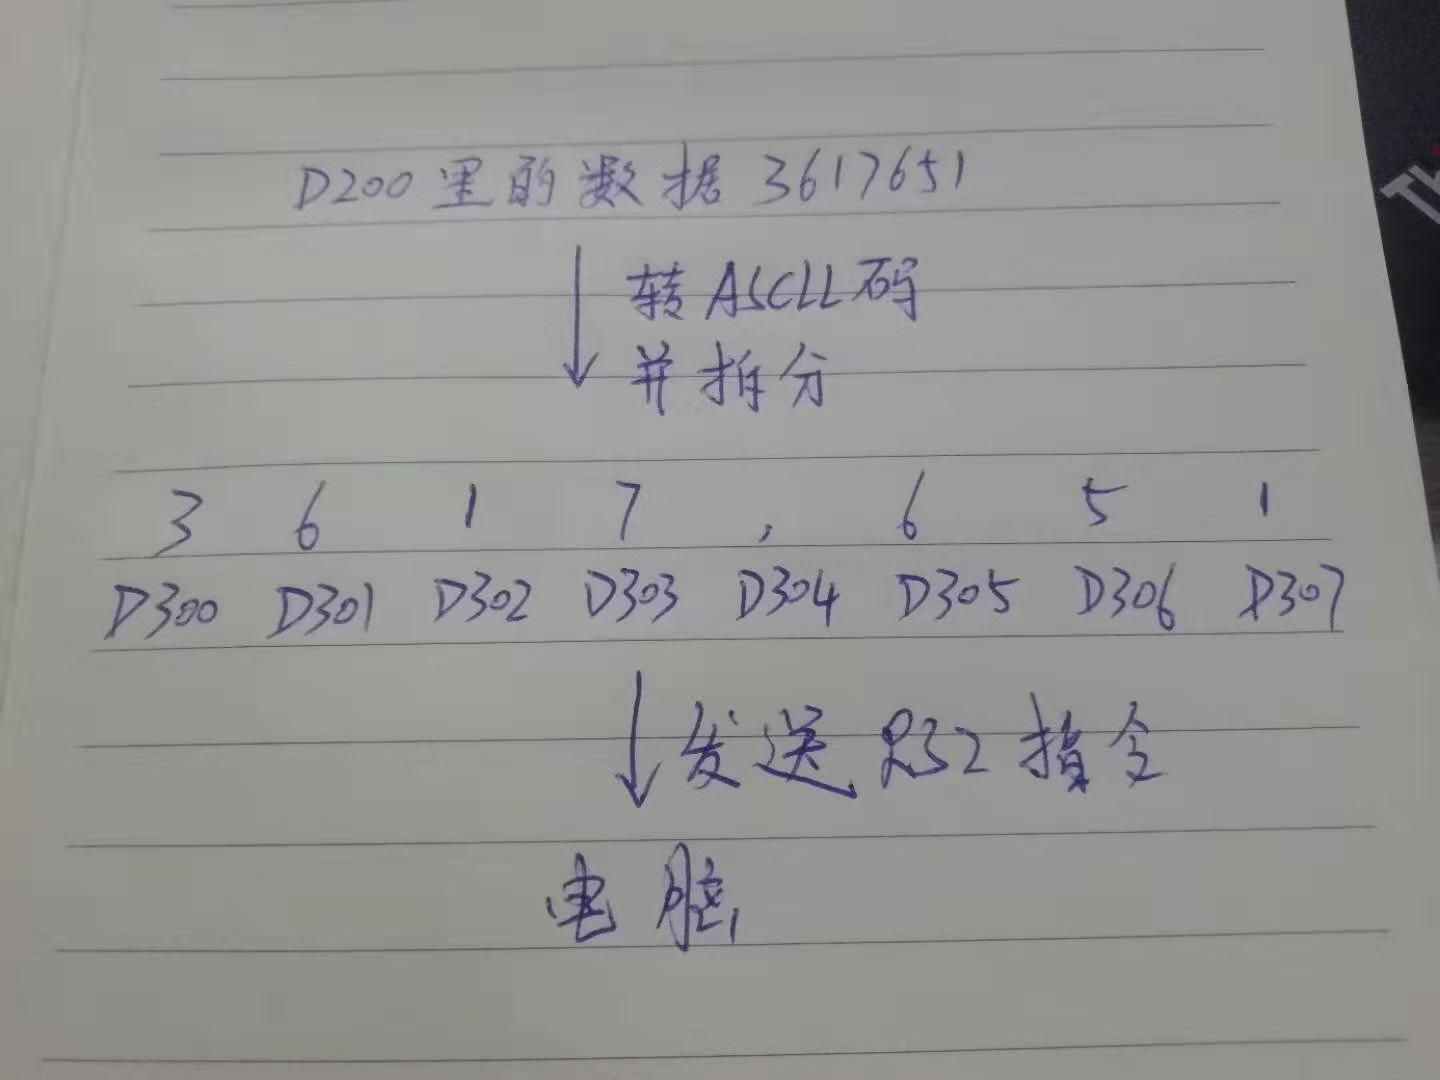 D200里的数据 3617651
转ASCLL码
并拆分
3 6 1 7 , 6 5 1
D300 D301 D302 D303 D304 D305 D306 D307
发送 RS2 指令
电脑